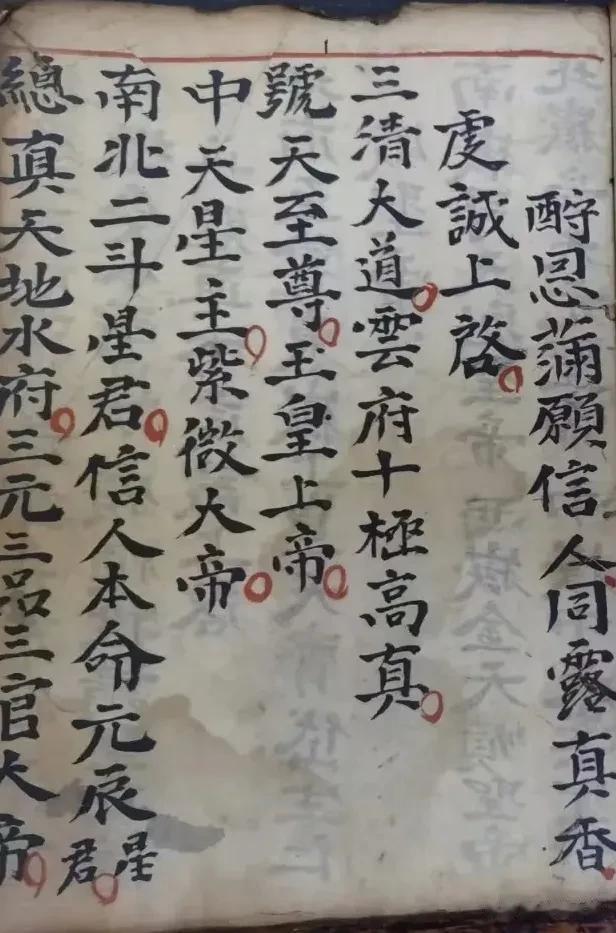 酧恩满願信人同露真香。
虔誠上啓。
三清大道。雲府十極高真。
號天至尊。玉皇上帝。
中天星主。紫微大帝。
南北二斗星君。信人本命元辰星君。
總真天地水府。三元三品三官大帝。